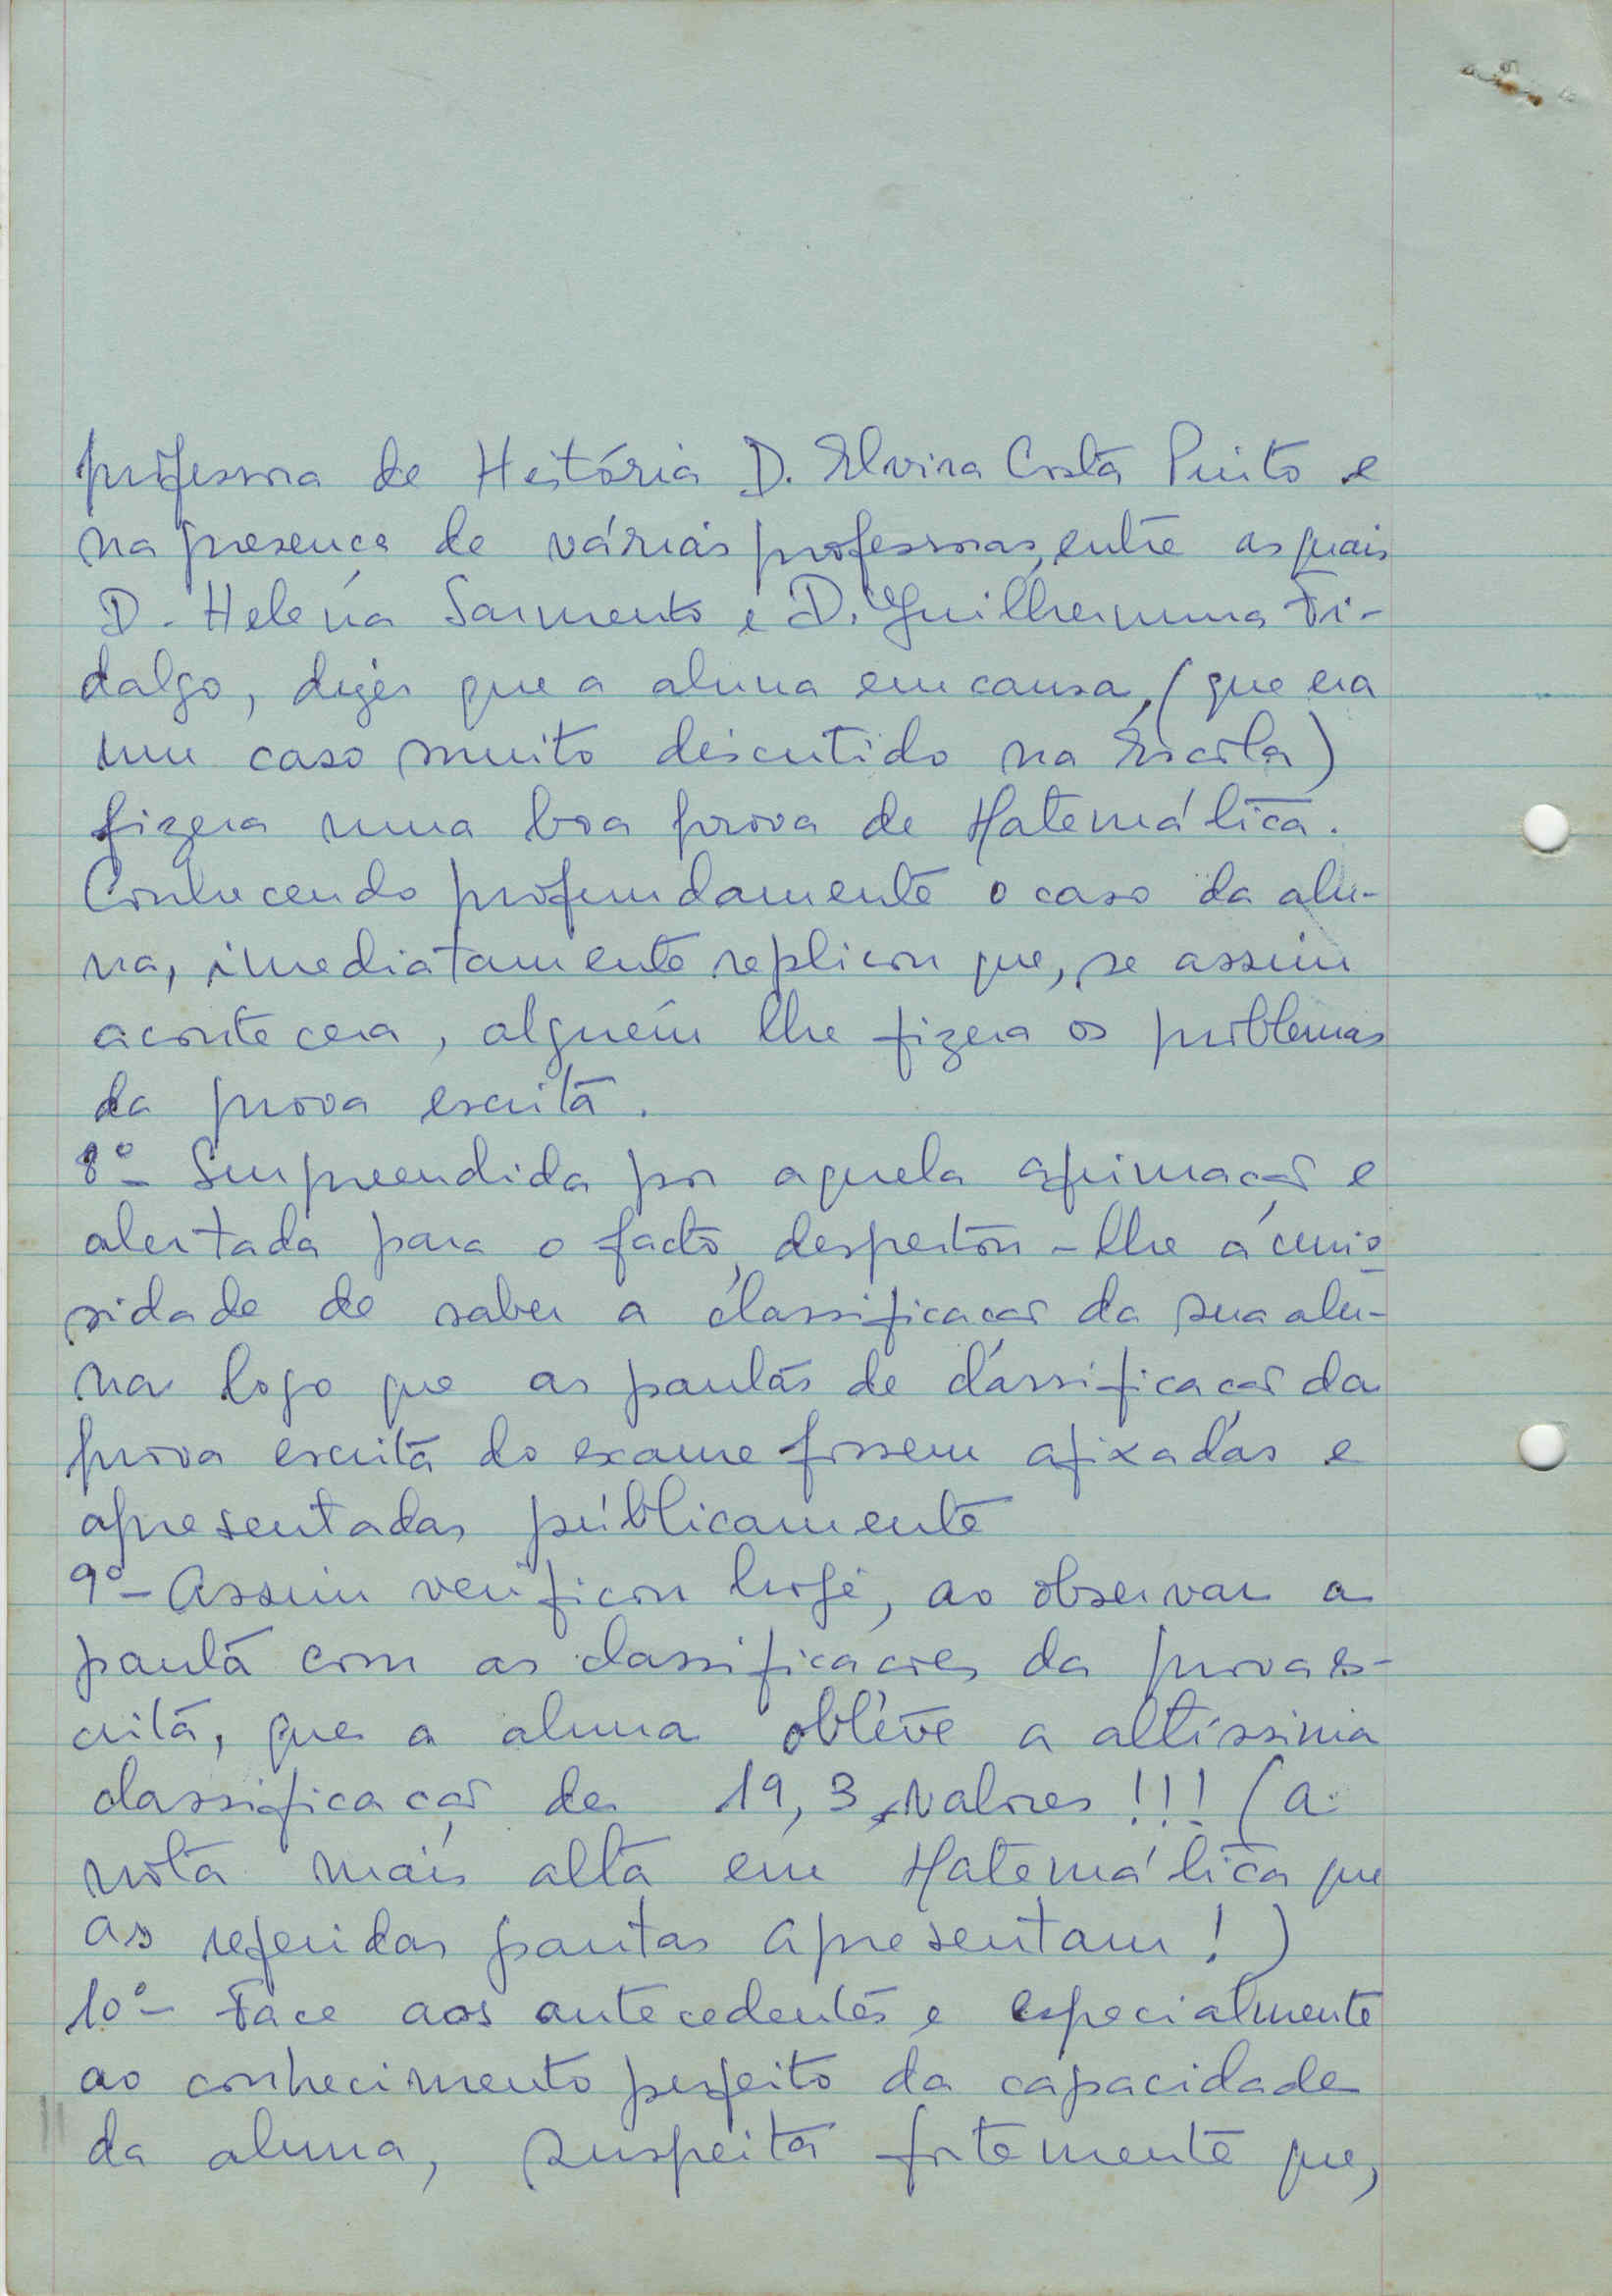 professora de História D. Elvira Costa Pinto e
na presença de várias professoras, entre as quais
D. Helena Sarmento e D. Guilhermina Fi-
dalgo, dizer que a aluna em causa, (que era
um caso muito discutido na Escola)
fizera uma boa prova de Matemática.
Conhecendo profundamente o caso da alu-
na, imediatamente replicou que, se assim
acontecera, alguém lhe fizera os problemas
da prova escrita.
8º- Surpreendida por aquela afirmação e
alertada para o facto, despertou-lhe a curio
sidade de saber a classificação da sua alu-
na logo que as pautas de classificação da
prova escrita do exame fossem afixadas e
apresentadas públicamente
9º- Assim verificou hoje, ao observar a
pauta com as classificações da prova es-
crita, que a aluna obteve a altíssima
classificação de 19,3 valores!!! (a
nota mais alta em Matemática que
as referidas pautas apresentam!)
10º- Face aos antecedentes e especialmente
ao conhecimento perfeito da capacidade
da aluna, suspeita fortemente que,